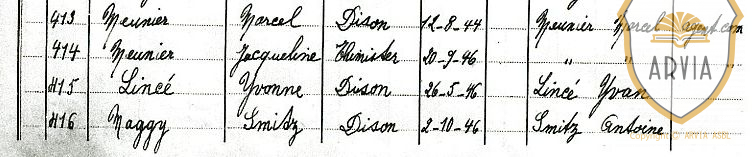 413 Meunier Marcel Dison 12-8-44 Meunier Marcel agent.com
414 Meunier Jacqueline Theminister 20-9-46 " " "
415 Lincé Yvonne Dison 26-5-46 Lincé Yvan
416 Naggy Smitz Dison 2-10-46 Smitz Antoine
ARVIA
COPYRIGHT © ARVIA ASBL